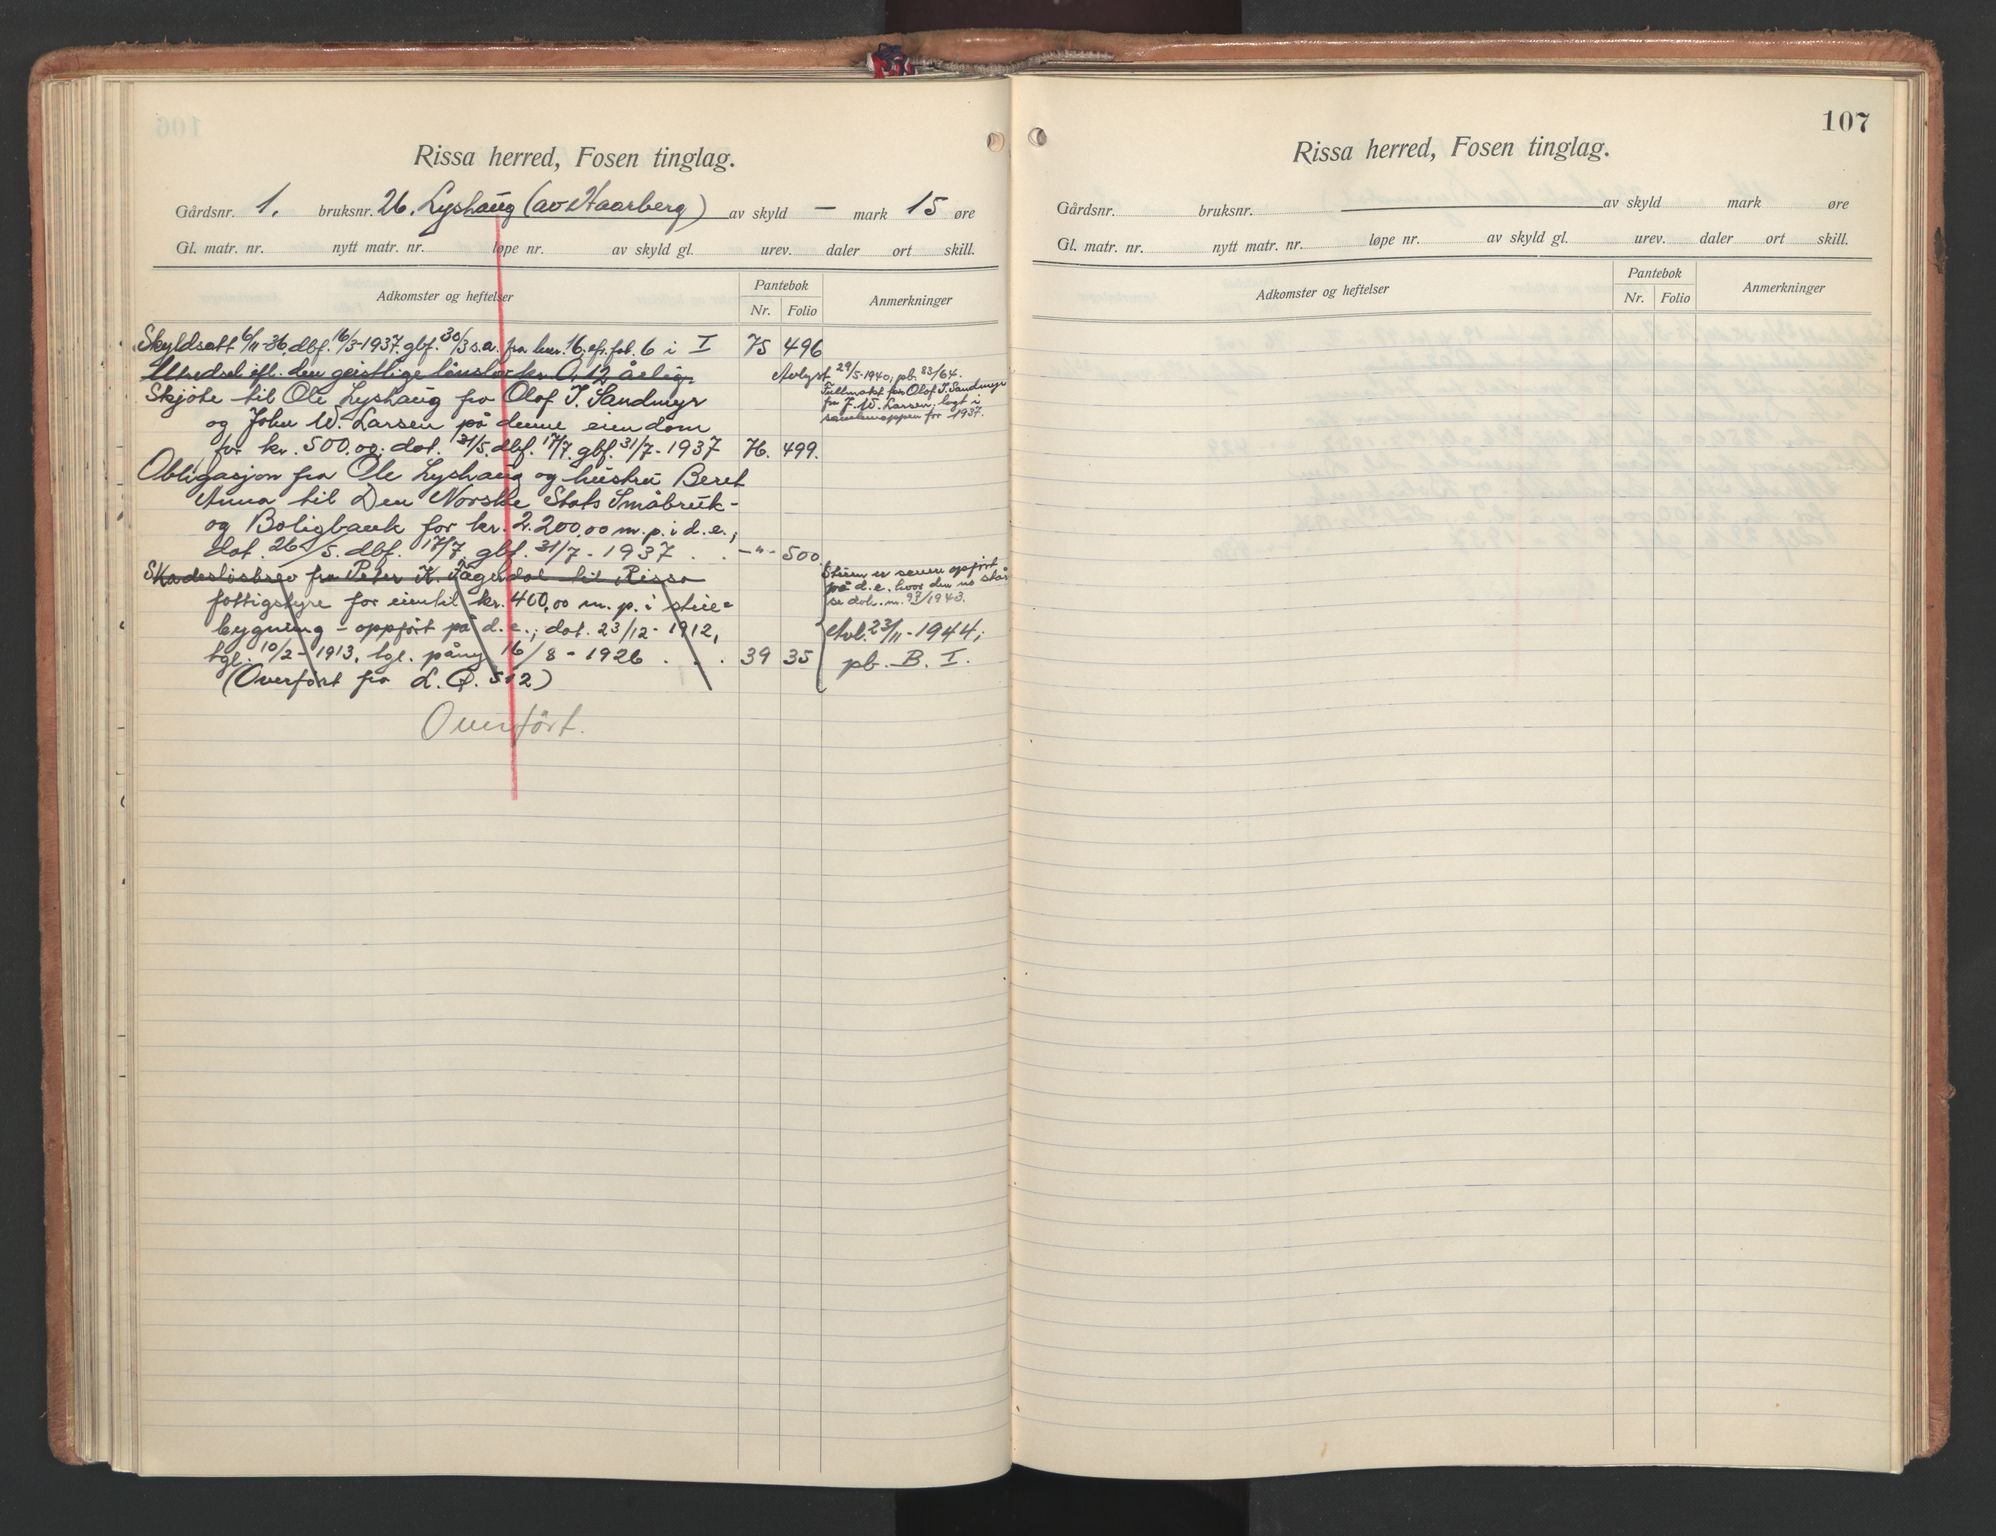 Rissa herred, Fosen tinglag.
Gårdsnr. 1. bruksnr. 26. Lyshaug (av Haarberg) av skyld — mark 15 øre
Gl. matr. nr. nytt matr. nr. løpe nr. av skyld gl. urev. daler ort skill.
Adkomster og heftelser Pantebok Anmerkninger
Nr. Folio
Skyldsatt 6/11-36, dbf. 16/3-1937, gbf. 30/3 s.a. fra bnr. 16, cfr. fol. 6 i I 75 496
Utredsel efl. den geistlige lånslov kr. 0,12 årlig. Avlyst 29/5-1940; pb. 83/64.
Skjöte til Ole Lyshaug fra Olof J. Sandmyr
og John W. Larsen på denne eiendom
for kr. 500,00; dat. 31/5, dbf. 17/7, gbf. 31/7-1937 76. 499.
Fullmakt for Olof J. Sandmyr
fra J. W. Larsen, lagt i
samlemappen for 1937.
Obligasjon fra Ole Lyshaug og hustru Beret
Anna til Den Norske Stats Småbruk-
og Boligbank for kr. 2.200,00 m. p. i d. e.,
dat. 26/5. dbf. 17/7, gbf. 31/7-1937 . . —"— 500
Skadeslösbrev fra Peter K. Fagerdal til Rissa
fattigstyre for eimtil kr. 400,00 m. p. i stue=
bygning – oppfört på d. e.; dat. 23/12-1912,
tgl. 10/2-1913, tgl. påny 16/8-1926 . . . 39 35
(Overfört fra L. Q. 512)
Stuen er senere oppfört
på d. e. hvor den no står
se dok. m. 93/1943.
Avl. 23/11-1944;
pb. B. I.
Overfört.
107
Rissa herred, Fosen tinglag.
Gårdsnr. bruksnr. av skyld mark øre
Gl. matr. nr. nytt matr. nr. løpe nr. av skyld gl. urev. daler ort skill.
Adkomster og heftelser Pantebok Anmerkninger
Nr. Folio